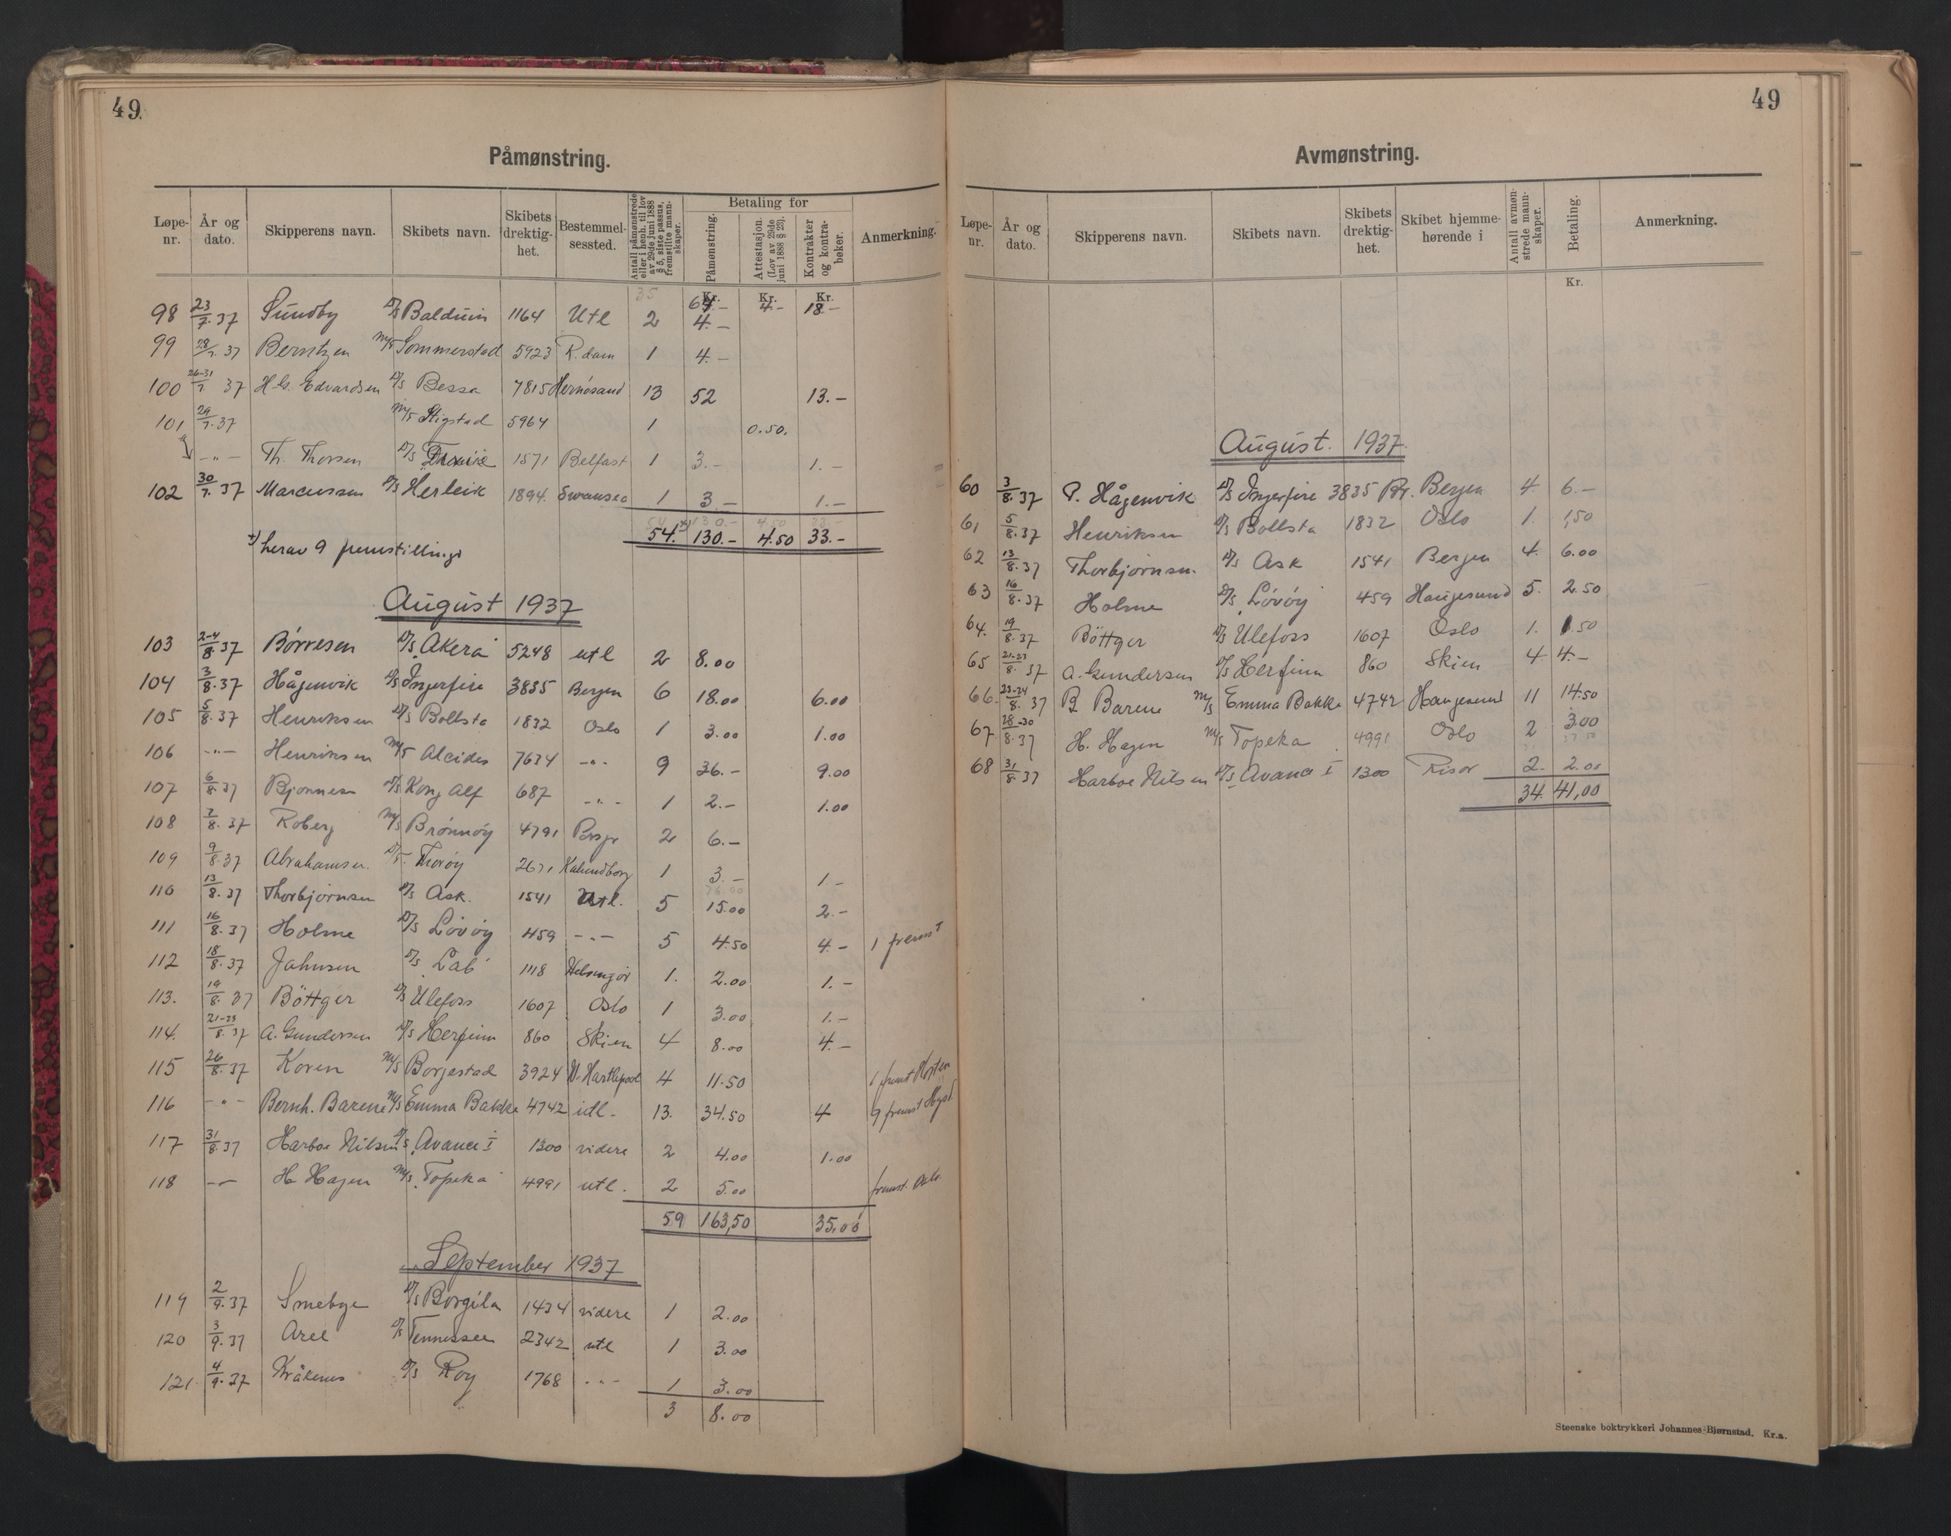 49.
Påmønstring.
Løpe-nr. År og dato. Skipperens navn. Skibets navn. Skibets drektig-het. Bestemmel-sessted. Antall påmønstrede eller i henh. til lov av 29de juni 1888 § 5, siste passus, fremstilte mann-skaper. Betaling for Påmønstring. Attestasjon. (Lov av 29de juni 1888 § 23). Kontrakter og kontra-bøker. Anmerkning.
35 Kr. Kr. Kr.
64.- 4.- 18.-
98 23/7.37 Sundby D/S Balduin 1164 Utl 2 4.-
99 28/7.37 Berntzen M/S Sommerstad 5923 R.dam 1 4.-
100 26-31/7 37 H. G. Edvardsen D/S Bessa 7815 Hernøsand 13 52 13.-
101 29/7.37 M/S Stigstad 5964 1 0.50.
-"- Th. Thorsen D/S 1571 Belfast 1 3.- 1.-
102 30/7.37 Marcussen D/S Herleik 1894 Swansea 1 3.- 1.-
54. 130.- 4.50 33.-
herav 9 fremstillinger
August 1937
103 2-4/8 37 Børresen D/S Akera 5248 utl 2 8.00
104 3/8.37 Hågenvik D/S Ingerfire 3835 Bergen 6 18.00 6.00
105 5/8.37 Henriksen D/S Bollsta 1832 Oslo 1 3.00 1.00
106 -"- Henriksen M/S Alcides 7634 -"- 9 36.- 9.00
107 6/8.37 Bjonnes D/S Kong Alf 687 -"- 1 2.- 1.00
108 7/8.37 Roberg M/S Brønnøy 4791 Porsgr 2 6.-
109 9/8.37 Abrahamsen. D/S Thorøy 2671 Kalundborg 1 3.- 1.-
110 13/8.37 Thorbjørnsen D/S Ask. 1541 Utl. 5 15.00 2.-
111 16/8.37 Holme D/S Løvøy 459 -"- 5 4.50 4.- 1 fremst
112 18/8.37 Jahnsen D/S Lab 1118 Helsingør 1. 2.00 1.-
113. 19/8.37 Böttger D/S Ulefoss 1607 Oslo 1 3.00 1.-
114. 21-23/8.37 A. Gundersen D/S Herfinn 860 Skien 4 8.00 4.-
115 26/8.37 Koren M/S Borgestad 3924 W. Hartlepool 4 11.50 1 fremst Horten
116 -"- Bernh. Barene M/S Emma Bakke 4742 utl. 13. 34.50 4 9 fremst
117 31/8.37 Harboe Nilsen D/S Avance I 1300 videre 2 4.00 1.00
118 -"- H. Hagen M/S Topeka 4991 utl. 2 5.00 fremst. Oslo.
59 163,50 35.00
September 1937
119 2/9.37 Smebye D/S Borgila 1434 videre 1 2.00
120 3/9.37 Aree D/S Tennessee 2342 utl 1 3.00
121 4/9.37 Kråkenes D/S Roy 1768 -"- 1 3.00
3 8.00
49
Avmønstring.
Løpe-nr. År og dato. Skipperens navn. Skibets navn. Skibets drektig-het. Skibet hjemme-hørende i Antall avmøn-strede mann-skaper. Betaling. Anmerkning.
Kr.
August. 1937.
60 3/8.37 P. Hågenvik D/S Ingerfire 3835 Br. Bergen 4. 6.-
61 5/8.37 Henriksen D/S Bollsta 1832 Oslo 1. 1,50
62 13/8.37 Thorbjørnsen. D/S Ask 1541 Bergen 4. 6.00
63 16/8.37 Holme D/S Løvøy 459 Haugesund 5. 2.50
64. 19/8.37 Böttger D/S Ulefoss 1607 Oslo 1. 1.50
65 21-23/8.37 A. Gundersen D/S Herfinn 860 Skien 4 4.-
66 23-24/8.37 B Barene M/S Emma Bakke 4742 Haugesund 11 14.50
67. 28-30/8.37 H. Hagen M/S Topeka 4991 Oslo 2 3.00
68 31/8.37 Harboe Nilsen D/S Avance I 1300 Risør 2. 2.00
34. 41,00
Steenske boktrykkeri Johannes Bjørnstad. Kr.a.